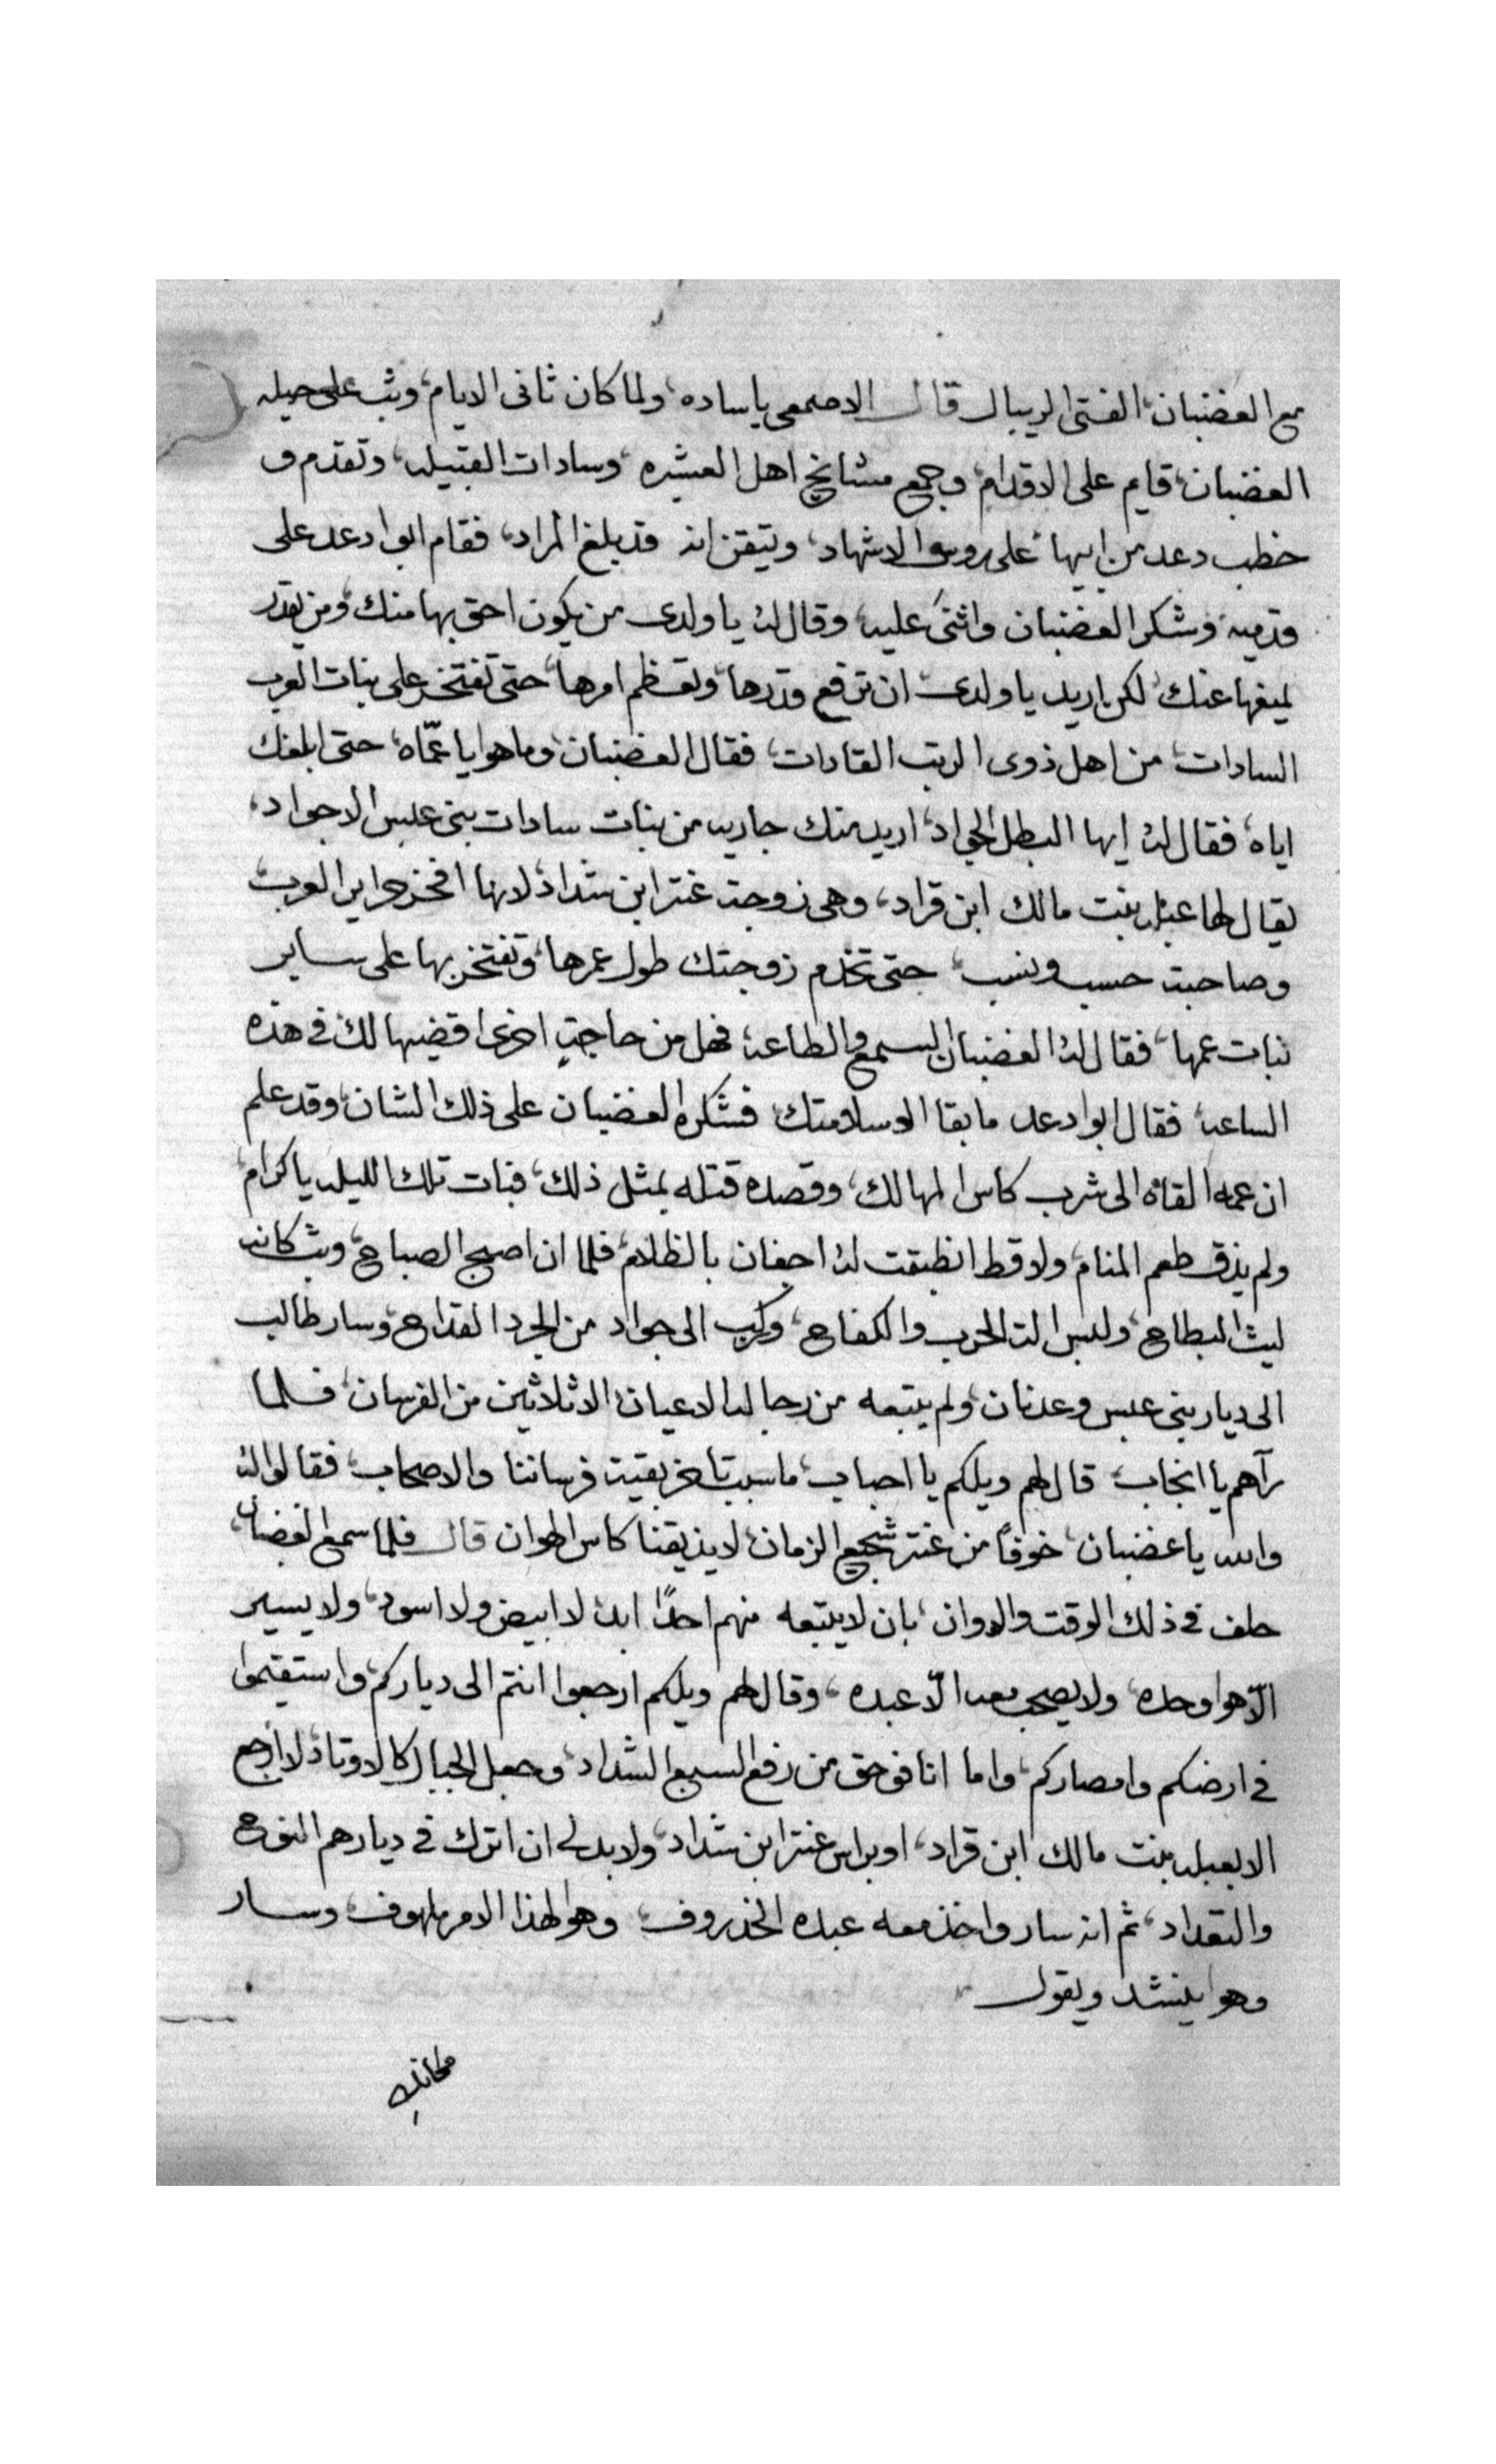 مع الغضبان، الفتى الريبال قال الاصمعى يا ساده، ولما كان ثانى الايام، وثب على حيله
الغضبان، قايم على الاقدام، وجمع مشايخ اهل العشيره، وسادات القبيله، وتقدم و
خطب دعد من ابيها، على روس الاشهاد، وتيقن انه قد بلغ المراد، فقام ابوا دعد على
قدميه، وشكر الغضبان واثنى عليه، وقال له يا ولدى من يكون احق بها منك، ومن يقدر
يمنعها عنك، لكن اريد يا ولدى، ان ترفع قدرها، وتعظم امرها، حتى تفتخر على بنات العرب
السادات، من اهل ذوى الرتب القادات، فقال الغضبان، وما هوا يا عمّاه، حتى ابلغك
اياه، فقال له ايها البطل الجواد، اريد منك جاريه من بنات سادات بنى عبس الاجواد،
يقال لها عبله بنت مالك ابن قراد، وهى زوجة عنتر ابن شداد، لانها افخر حراير العرب،
وصاحبة حسب ونسب، حتى تخدم زوجتك طول عمرها، وتفتخر بها على ساير
بنات عمها، فقال له الغضبان السمع والطاعه، فهل من حاجةٍ اخرى اقضيها لك فى هذه
الساعه، فقال ابوا دعد ما بقا الا سلامتك فشكره الغضبان على ذلك الشان، وقد علم
ان عمه القاه الى شرب كاس المهالك، وقصده قتله بمثل ذلك، فبات تلك الليله يا كرام،
ولم يذق طعم المنام، ولا قط انطبقت له اجفان بالظلام، فلما ان اصبح الصباح، وثب كانه
ليث البطاح، ولبس الة الحرب والكفاح، وركب الى جواد من الجرد القداح، وسار طالب
الى ديار بنى عبس وعدنان، ولم يتبعه من رجاله الاعيان، الا ثلاثين من الفرسان، فلما
رآهم يا انجاب، قال لهم ويلكم يا احباب، ما سبب تاخر بقية فرساننا والاصحاب، فقالوا له
والله يا غضبان، خوفاً من عنتر شجيع الزمان، لا يذيقنا كاس الهوان قال فلما سمع الغضبان،
حلف فى ذلك الوقت والاوان، بان لا يتبعه منهم احدًا ابدا، لا ابيض ولا اسود، ولا يسير
الّا هوا وحده، ولا يصحب معه الّا عبده، وقال لهم ويلكم ارجعوا انتم الى دياركم، واستقيموا
فى ارضكم وامصاركم، واما انا فوحق من رفع السبع الشداد، وجعل الجبال كالاوتاد، لا ارجع
الا بعبله بنت مالك ابن قراد، او براس عنتر ابن شداد، ولا بد لى ان اترك فى ديارهم النوح
والتعداد، ثم انه سار واخذ معه عبده الخذروف، وهوا لهذا الامر ملهوف، وسار
وهوا ينشد ويقول